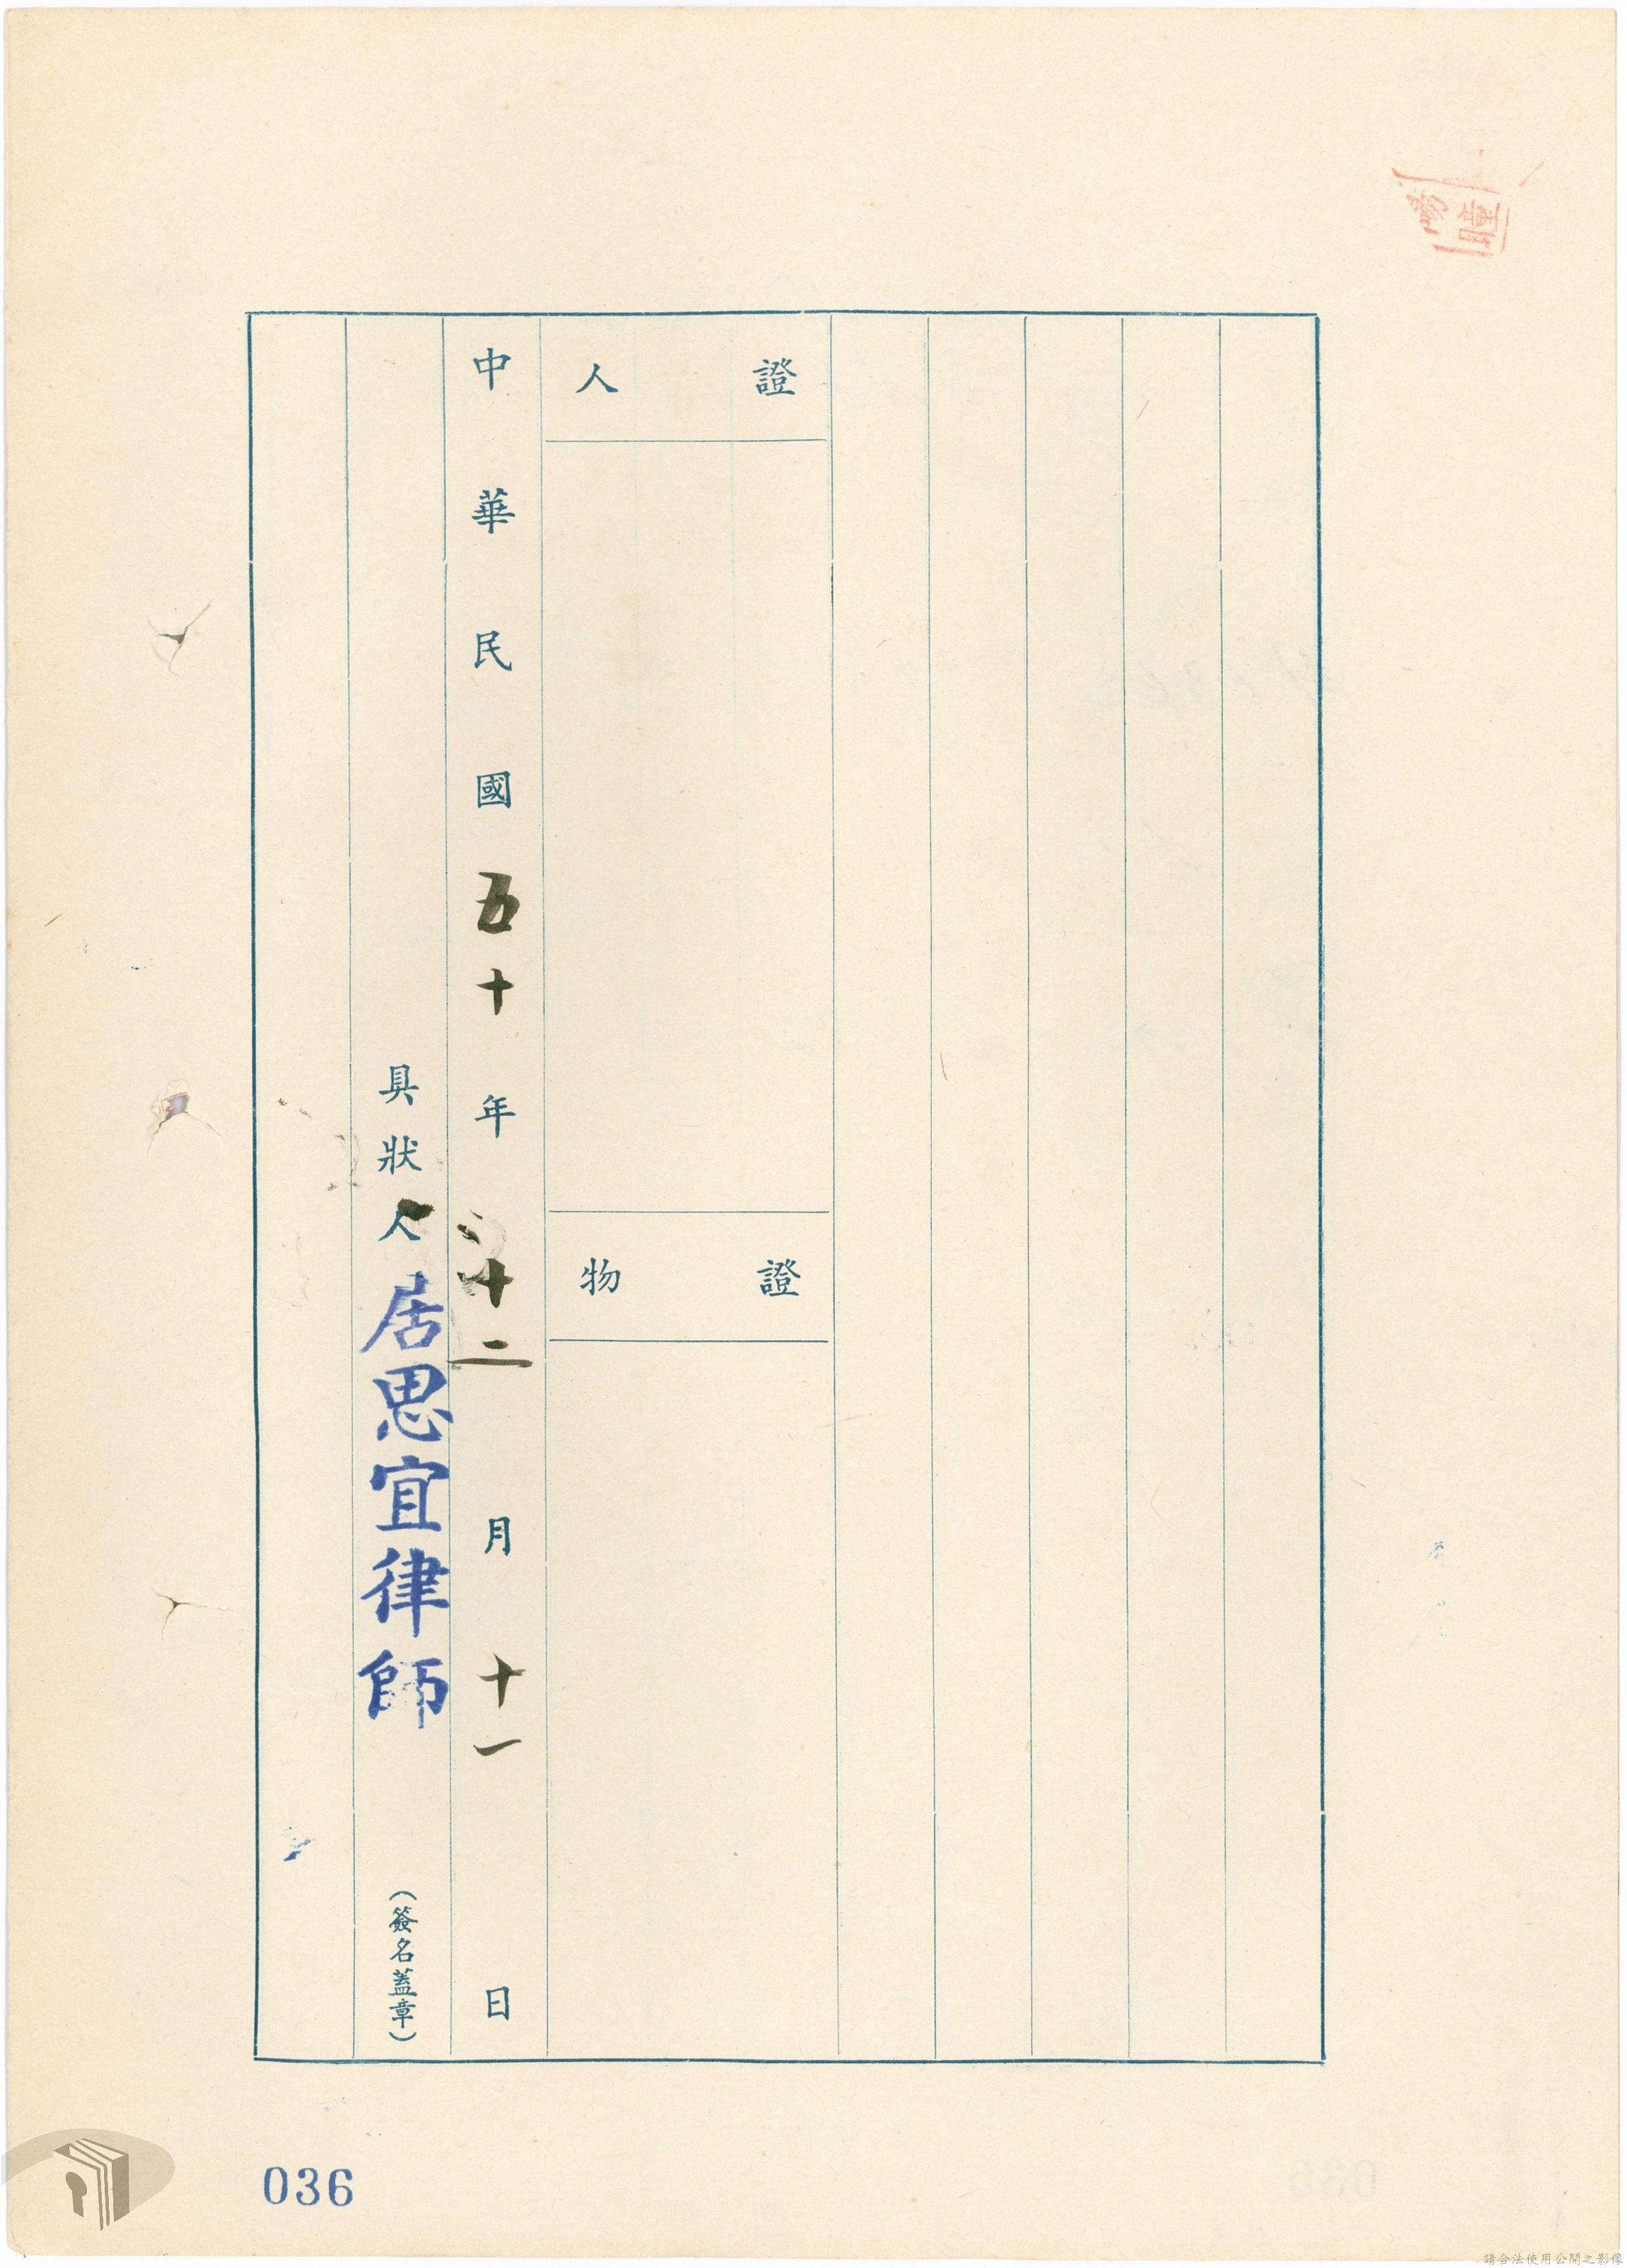 證人
證物
中華民國五十年十二月十一日
具狀人居思宜律師(簽名蓋章)
036
請合法使用公開之影像